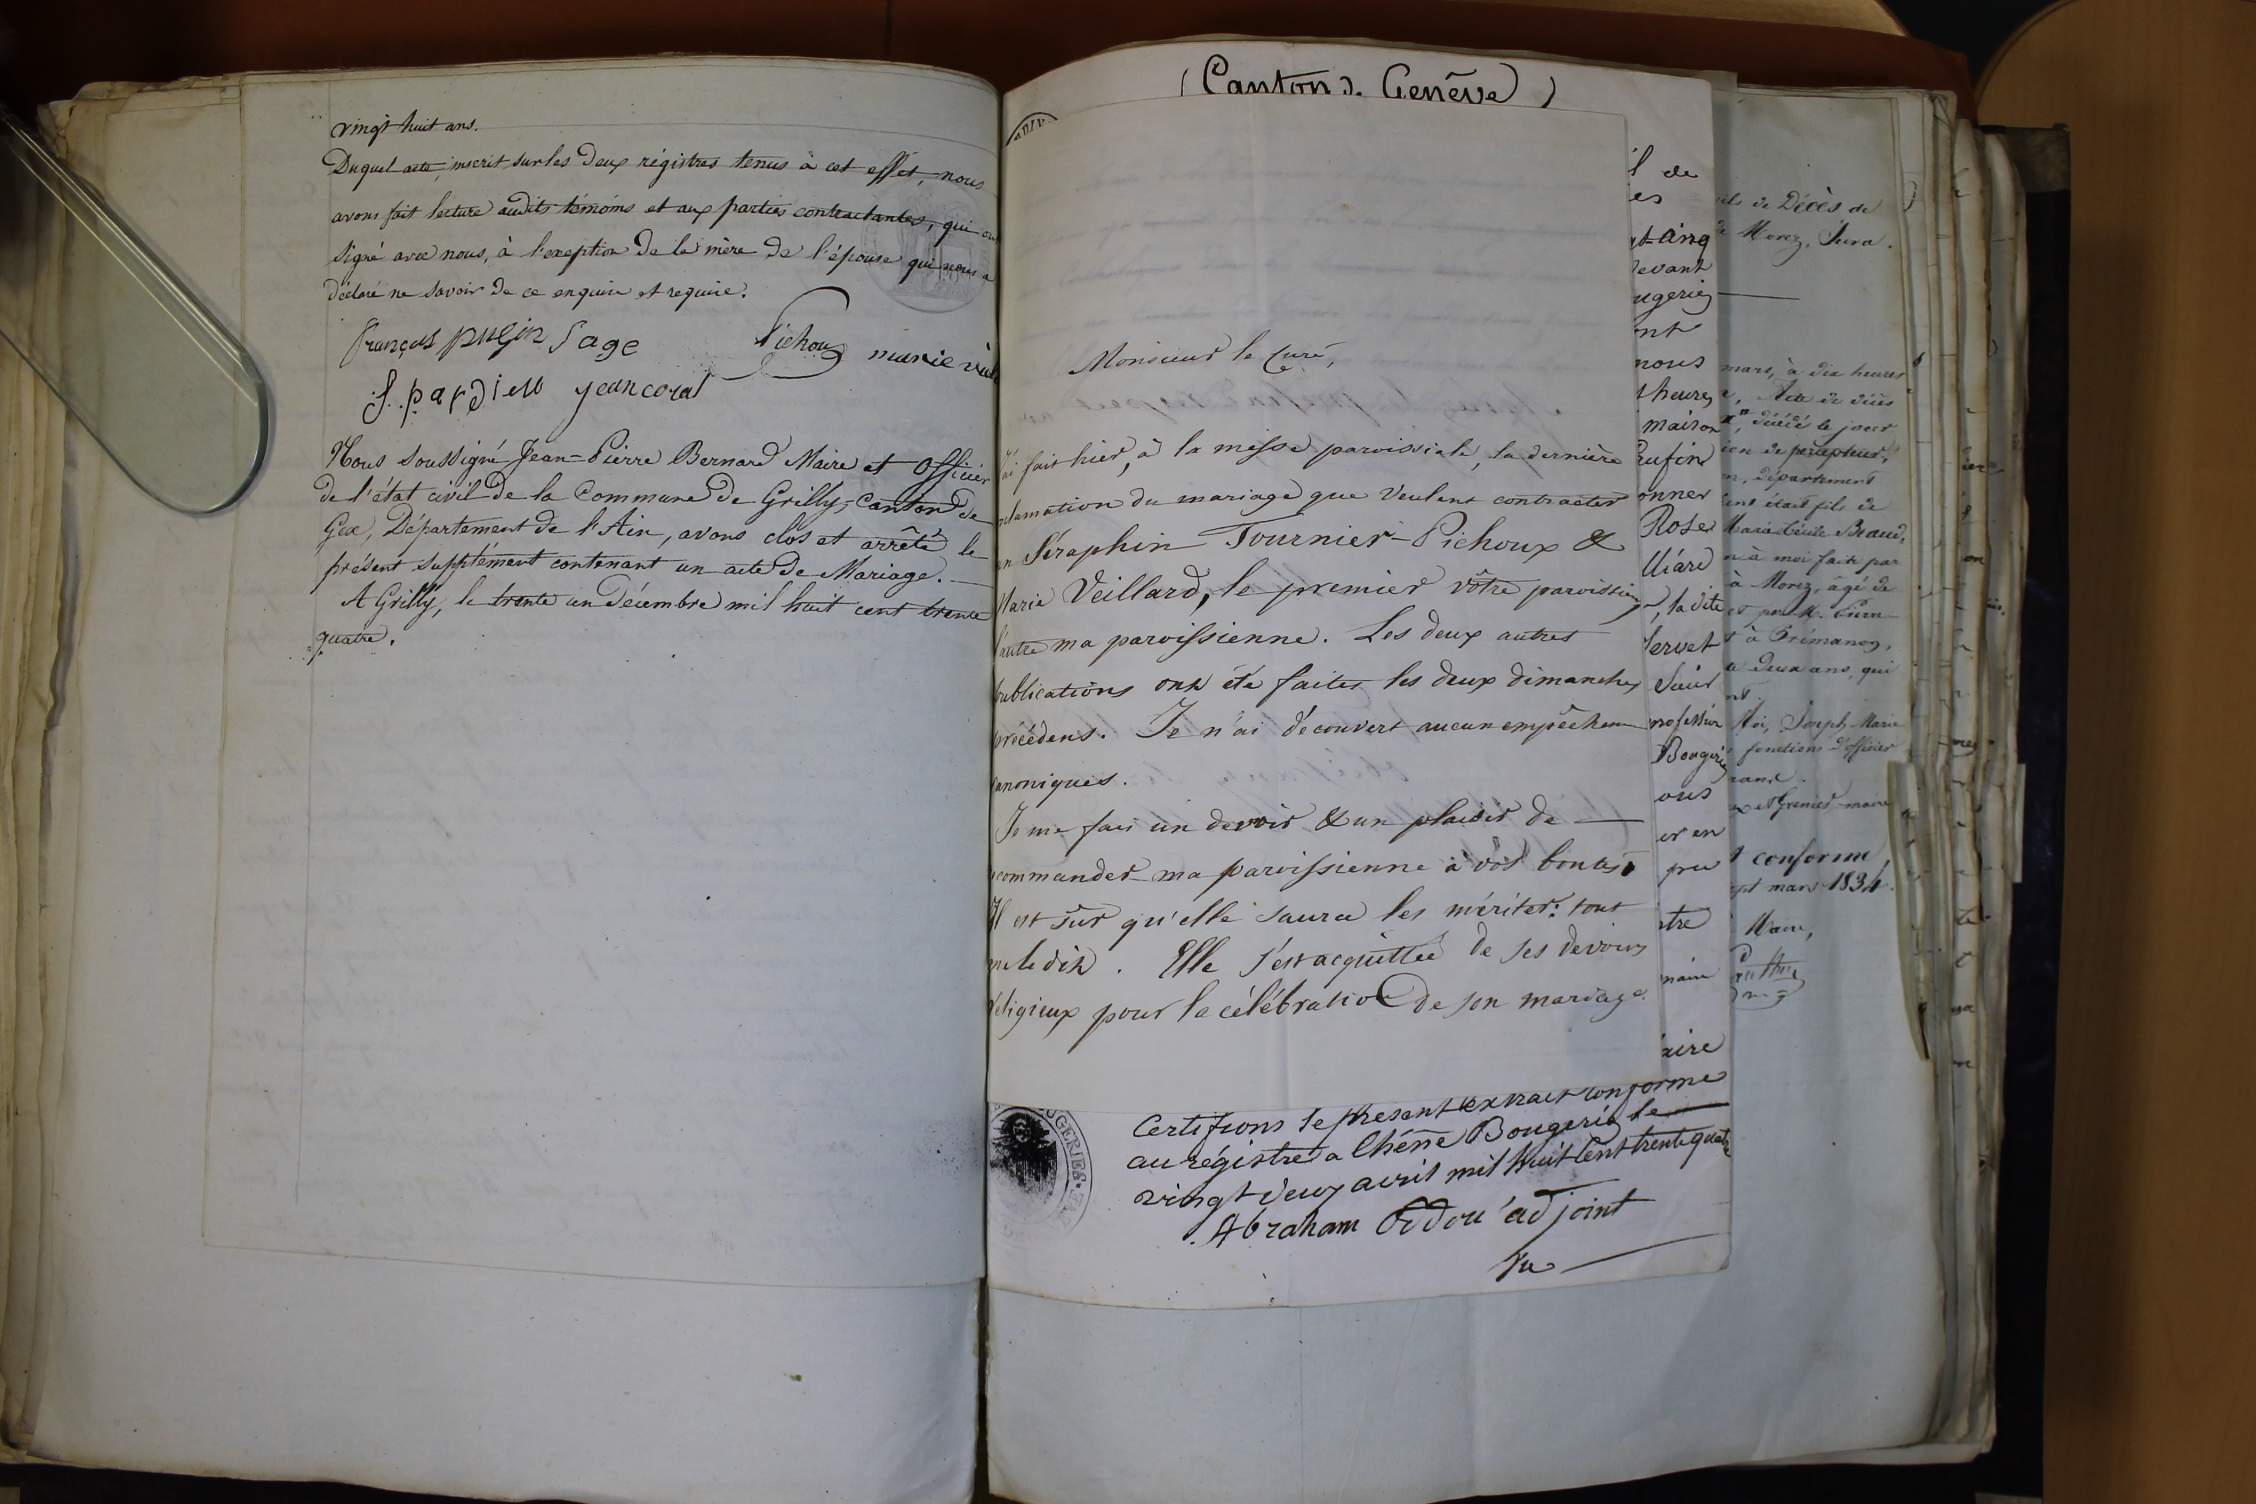 vingt huit ans.
Duquel acte, inscrit sur les deux régistres tenus à cet effet, nous
avons fait lecture audits témoins et aux parties contractantes, qui ont
signé avec nous, à l'exeption de la mère de l'épouse qui nous a
déclaré ne savoir de ce enquise et requise.
françois pugin Sage Pichoux marie
J. pardieu jean coral
Nous soussigné Jean-Pierre Bernard Maire et Officier
de l'état civil de la Commune de Grilly, Canton de
Gex, Département de l'Ain, avons clos et arrêté le
présent supplément contenant un acte de Mariage.
A Grilly, le trente un décembre mil huit cent trente
quatre.
(Canton de Genève)
Monsieur le Curé,
'ai fait hier, à la messe paroissiale, la dernière
clamation du mariage que veulent contracter
en Séraphin Tournier-Pichoux &
Marie Veillard, le premier vôtre paroissien,
l'autre ma paroissienne. Les deux autres
publications ont été faites les deux dimanches
précédens. Je n'ai découvert aucun empêchem
canoniques.
Je me fais un devoir & un plaisir de
commander ma paroissienne à vos bontés,
Il est sûr qu'elle saura les mériter: tout
me le dit. Elle s'est acquittée de ses devoirs
religieux pour la célébration de son mariage.
Certifions le présent extrait conforme
au régistre a Chêne Bougeries le
vingt deux avril mil huit Cent trente quatre
Abraham Oddou adjoint
l de
es
gt-cinq
devant
ugeries
ont
nous
t heures
maison
Rufin
onner
Rose
lliard
, la dite
Servet
Sieur
profession
Bougeries
ous
er en
pru
tre
maire
aire
GERIES
de Décès de
Morez, Jura.
mars, à dix heures
, Acte de décès
, décédé le jour
ien de percepteur,
n, département
ent était fils de
Maria Cécile Braud,
n à moi faite par
à Morez, âgé de
et par M.
t à Prémanon,
deux ans, qui
nt.
Moi, Joseph Marie
fonctions d'officier
rand.
et Grenier maire
t conforme,
pt mars 1834.
Maire,